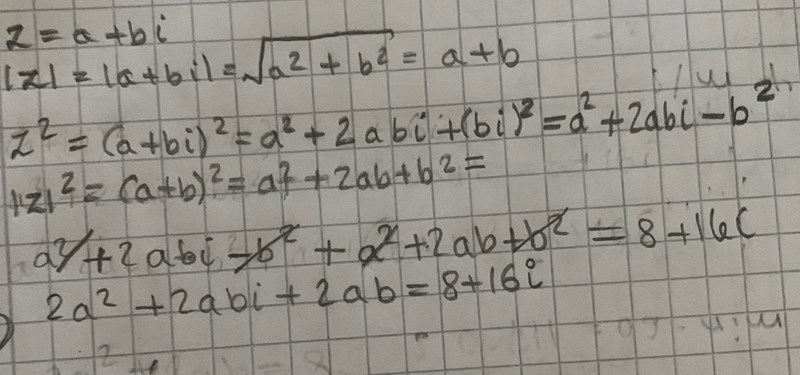 z = a + bi
|z| = |a+bi| = √(a² + b²) = a + b
z² = (a+bi)² = a² + 2abi + (bi)² = a² + 2abi − b²
|z|² = (a+b)² = a² + 2ab + b² =
a² + 2abi − b² + a² + 2ab + b² = 8 + 16i
2a² + 2abi + 2ab = 8 + 16i